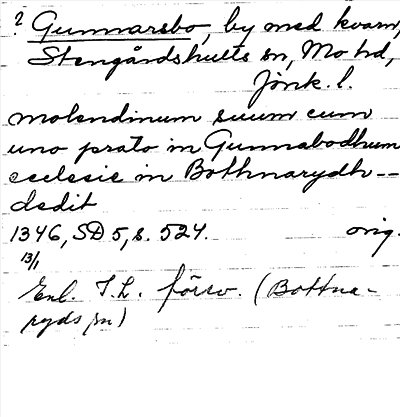 ? Gunnarsbo, by med kvarn,
Stengårdshults sn, Mo hd,
Jönk. l.
molendinum suum cum
uno prato in Gunnabodhum
ecclesie in Bothnarydh --
dedit
1346, SD 5, s. 524. orig.
13/1
Enl. I.L. försv. (Bottna-
ryds sn)